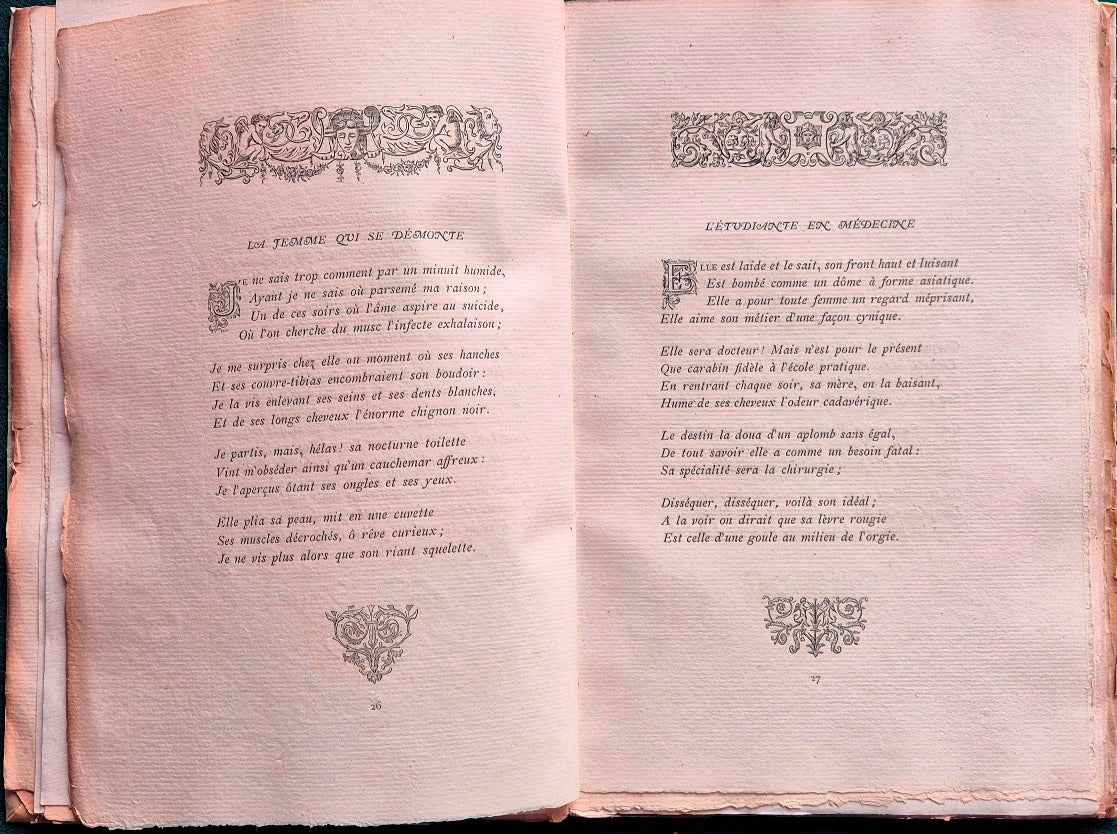 LA FEMME QUI SE DÉMONTE
JE ne sais trop comment par un minuit humide,
Ayant je ne sais où parsemé ma raison ;
Un de ces soirs où l'âme aspire au suicide,
Où l'on cherche du musc l'infecte exhalaison ;
Je me surpris chez elle au moment où ses hanches
Et ses couvre-tibias encombraient son boudoir :
Je la vis enlevant ses seins et ses dents blanches,
Et de ses longs cheveux l'énorme chignon noir.
Je partis, mais, hélas ! sa nocturne toilette
Vint m'obséder ainsi qu'un cauchemar affreux :
Je l'aperçus ôtant ses ongles et ses yeux.
Elle plia sa peau, mit en une cuvette
Ses muscles décrochés, ô rêve curieux ;
Je ne vis plus alors que son riant squelette.
26
L'ÉTUDIANTE EN MÉDECINE
ELLE est laide et le sait, son front haut et luisant
Est bombé comme un dôme à forme asiatique.
Elle a pour toute femme un regard méprisant,
Elle aime son métier d'une façon cynique.
Elle sera docteur ! Mais n'est pour le présent
Que carabin fidèle à l'école pratique.
En rentrant chaque soir, sa mère, en la baisant,
Hume de ses cheveux l'odeur cadavérique.
Le destin la doua d'un aplomb sans égal,
De tout savoir elle a comme un besoin fatal :
Sa spécialité sera la chirurgie ;
Disséquer, disséquer, voilà son idéal ;
A la voir on dirait que sa lèvre rougie
Est celle d'une goule au milieu de l'orgie.
27